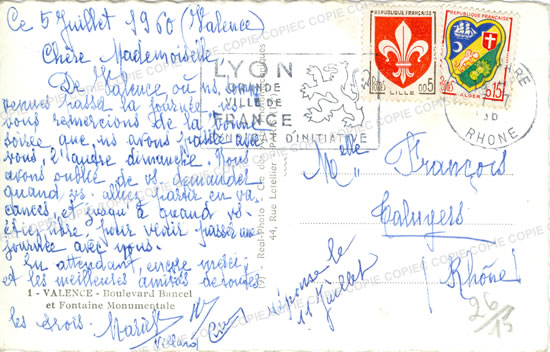 Ce 5 Juillet 1960 (Valence)
Chère Mademoiselle
De Valence où ns sommes
venues passer la journée, ns
vous remercions de la bonne
soirée que ns avons passée avec
vous, l'autre dimanche. Nous
avons oublié de vs demander
quand vs allez partir en va-
cances, et jusqu'à quand vs
êtes libre, pour venir passer une
journée avec nous.
En attendant, encore merci,
et les meilleures amitiés de
1 - VALENCE - Boulevard Bancel
et Fontaine Monumentale
les trois.
Villard
Real-Photo
44, Rue Letellier
réponse le
11 Juillet
LYON
GRANDE
VILLE DE
FRANCE
D'INITIATIVE
REPUBLIQUE FRANÇAISE
Postes
0.05
LILLE
REPUBLIQUE FRANÇAISE
Postes
0.15
ALGER
RHONE
Melle François
Taluyers
Rhône
26/13
COPIE COPIE COPIE COPIE